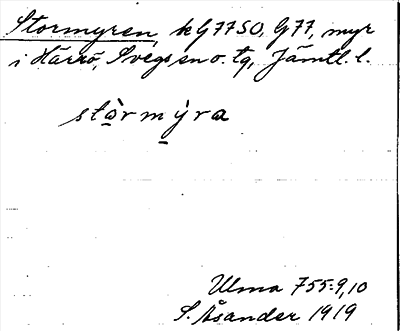 Stormyren, k G 77 SO, G 77, myr
i Härrö, Svegs sn o. tg, Jämtl. l.
stòrmýra
Ulma 755:9,10
S. Åsander 1919